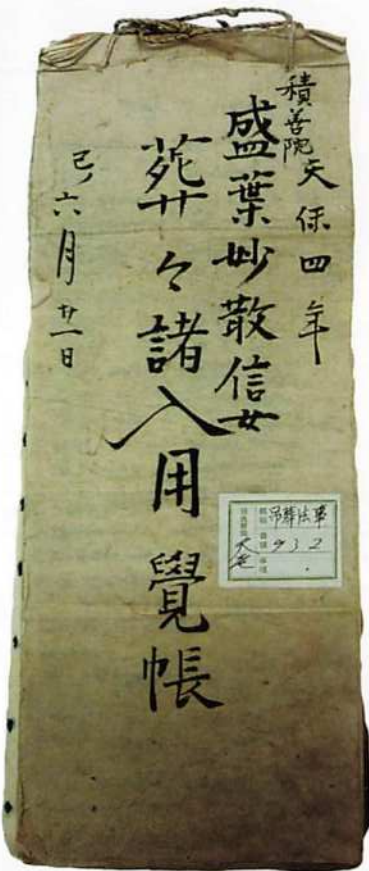 積善院
天保四年
盛葉妙散信女
葬々諸入用覺帳
巳六月廿一日
吊葬法事
932